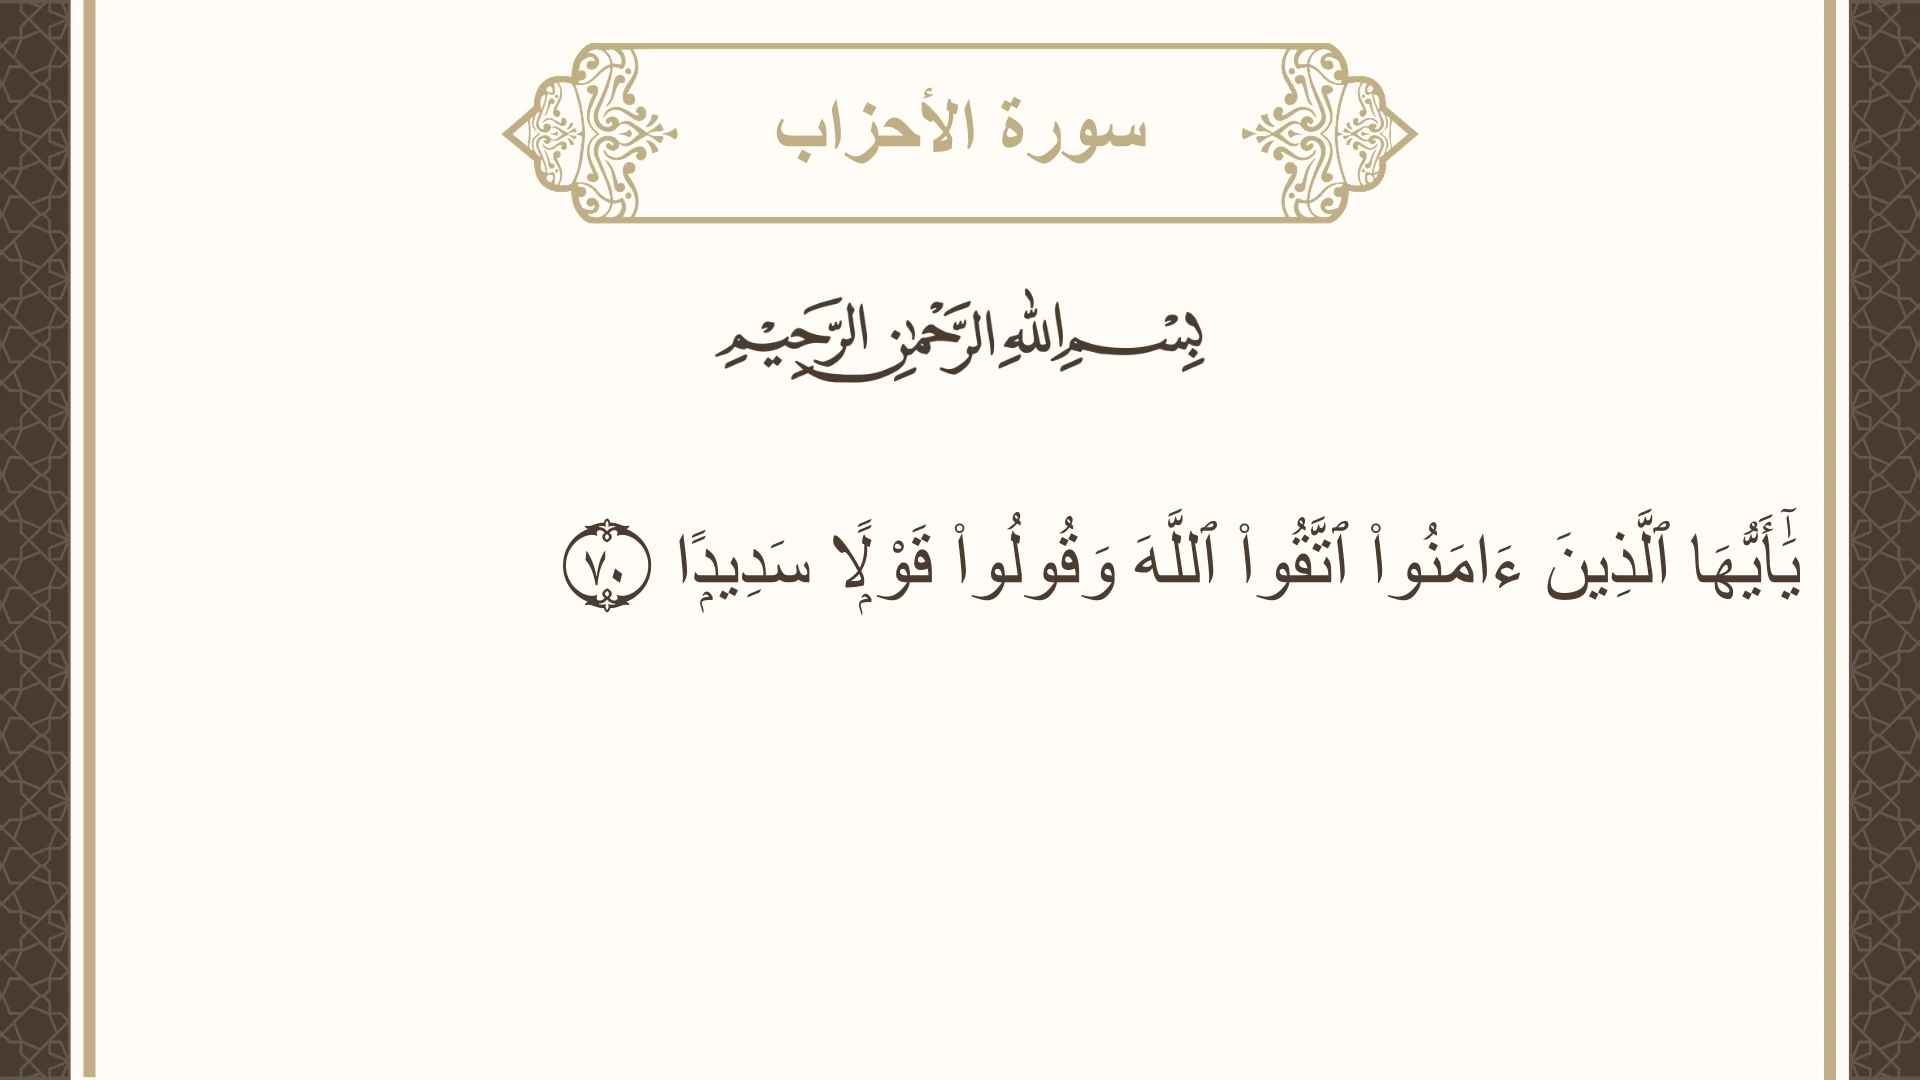 سورة الأحزاب
بِسْمِ اللهِ الرَّحْمٰنِ الرَّحِيْمِ
يَٰٓأَيُّهَا ٱلَّذِينَ ءَامَنُوا۟ ٱتَّقُوا۟ ٱللَّهَ وَقُولُوا۟ قَوْلًۭا سَدِيدًۭا ٧٠